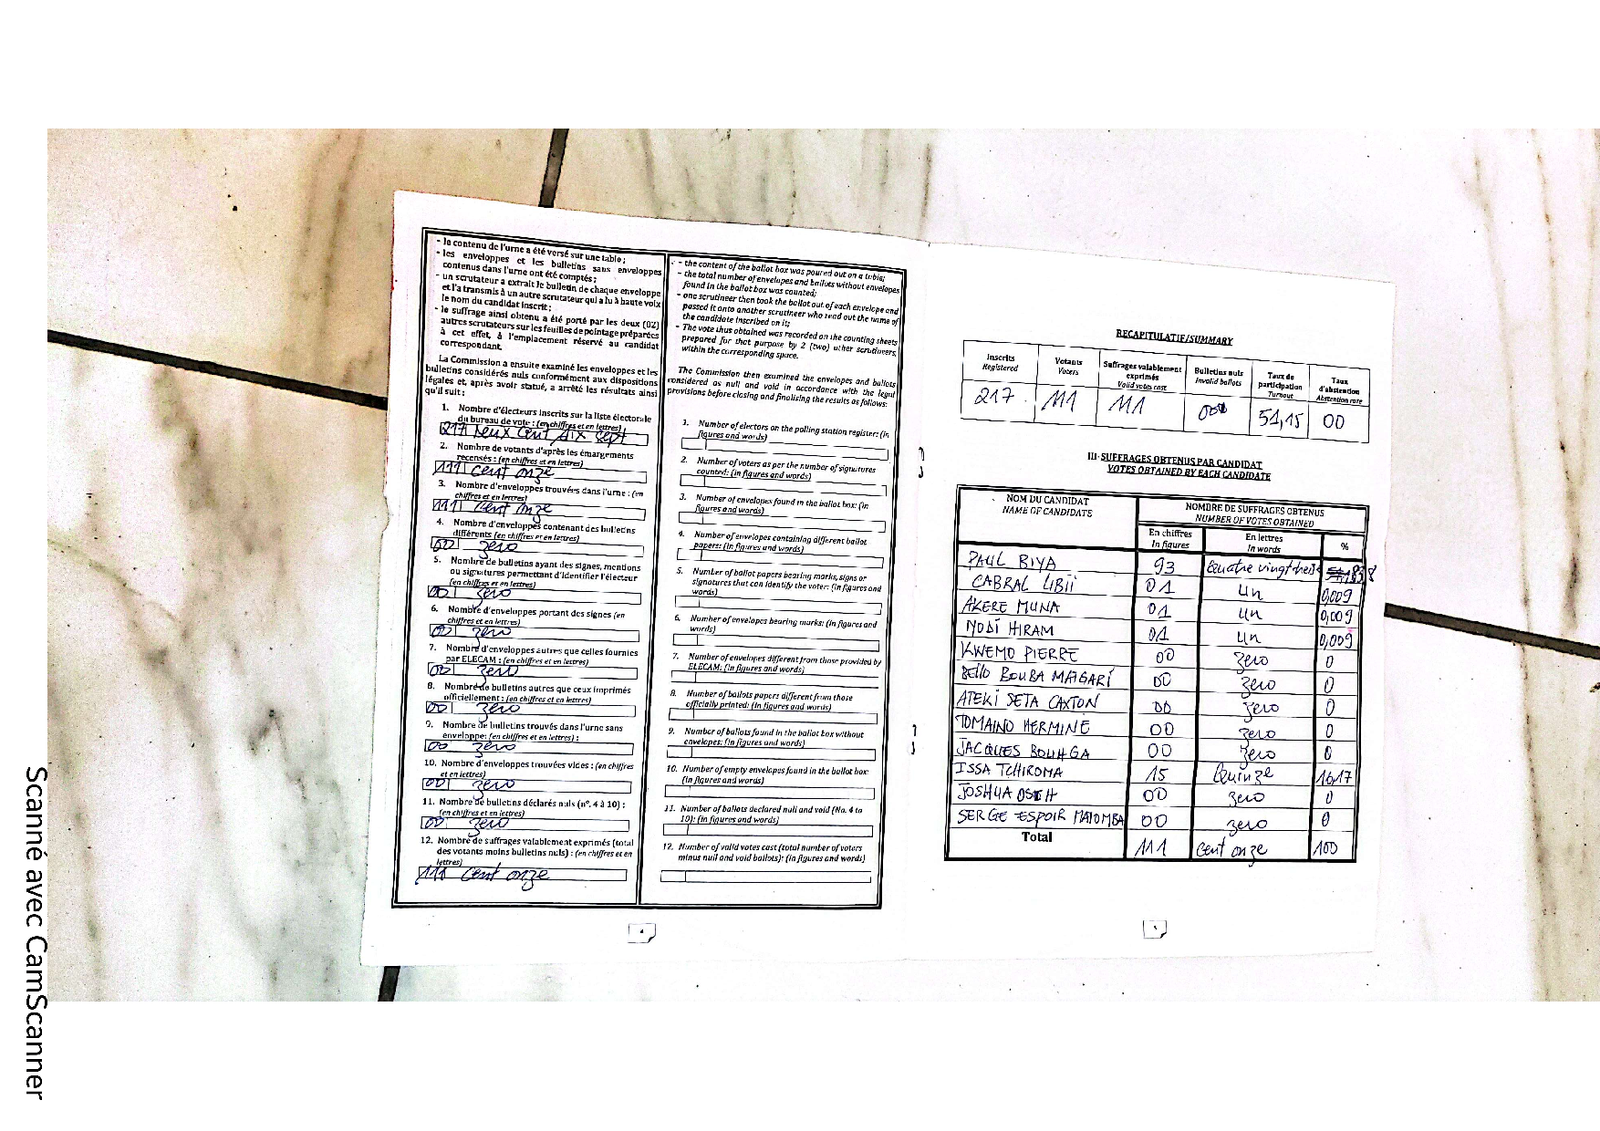 - le contenu de l'urne a été versé sur une table ;
- les enveloppes et les bulletins sans enveloppes
contenus dans l'urne ont été comptés ;
- un scrutateur a extrait le bulletin de chaque enveloppe
et l'a transmis à un autre scrutateur qui a lu à haute voix
le nom du candidat inscrit ;
- le suffrage ainsi obtenu a été porté par les deux (02)
autres scrutateurs sur les feuilles de pointage préparées
à cet effet, à l'emplacement réservé au candidat
correspondant.
La Commission a ensuite examiné les enveloppes et les
bulletins considérés nuls conformément aux dispositions
légales et, après avoir statué, a arrêté les résultats ainsi
qu'il suit :
1. Nombre d'électeurs inscrits sur la liste électorale
du bureau de vote : (en chiffres et en lettres)
217 deux cent dix sept
2. Nombre de votants d'après les émargements
recensés : (en chiffres et en lettres)
111 cent onze
3. Nombre d'enveloppes trouvées dans l'urne : (en
chiffres et en lettres)
111 cent onze
4. Nombre d'enveloppes contenant des bulletins
différents (en chiffres et en lettres)
00 zero
5. Nombre de bulletins ayant des signes, mentions
ou signatures permettant d'identifier l'électeur
(en chiffres et en lettres)
00 zero
6. Nombre d'enveloppes portant des signes (en
chiffres et en lettres)
00 zero
7. Nombre d'enveloppes autres que celles fournies
par ELECAM : (en chiffres et en lettres)
00 zero
8. Nombre de bulletins autres que ceux imprimés
officiellement : (en chiffres et en lettres)
00 zero
9. Nombre de bulletins trouvés dans l'urne sans
enveloppe: (en chiffres et en lettres) :
00 zero
10. Nombre d'enveloppes trouvées vides : (en chiffres
et en lettres)
00 zero
11. Nombre de bulletins déclarés nuls (n°. 4 à 10) :
(en chiffres et en lettres)
00 zero
12. Nombre de suffrages valablement exprimés (total
des votants moins bulletins nuls) : (en chiffres et en
lettres)
111 cent onze
- the content of the ballot box was poured out on a table;
- the total number of envelopes and ballots without envelopes
found in the ballot box was counted;
- one scrutineer then took the ballot out of each envelope and
passed it onto another scrutineer who read out the name of
the candidate inscribed on it;
- The vote thus obtained was recorded on the counting sheets
prepared for that purpose by 2 (two) other scrutineers,
within the corresponding space.
The Commission then examined the envelopes and ballots
considered as null and void in accordance with the legal
provisions before closing and finalising the results as follows:
1. Number of electors on the polling station register: (in
figures and words)
2. Number of voters as per the number of signatures
counted: (in figures and words)
3. Number of envelopes found in the ballot box: (in
figures and words)
4. Number of envelopes containing different ballot
papers: (in figures and words)
5. Number of ballot papers bearing marks, signs or
signatures that can identify the voter: (in figures and
words)
6. Number of envelopes bearing marks: (in figures and
words)
7. Number of envelopes different from those provided by
ELECAM: (in figures and words)
8. Number of ballots papers different from those
officially printed: (in figures and words)
9. Number of ballots found in the ballot box without
envelopes: (in figures and words)
10. Number of empty envelopes found in the ballot box:
(in figures and words)
11. Number of ballots declared null and void (No. 4 to
10): (in figures and words)
12. Number of valid votes cast (total number of voters
minus null and void ballots): (in figures and words)
4
RECAPITULATIF/SUMMARY
Inscrits Registered Votants Voters Suffrages valablement exprimés Valid votes cast Bulletins nuls Invalid ballots Taux de participation Turnout Taux d'abstention Abstention rate
217 111 111 00 51,15 00
III-SUFFRAGES OBTENUS PAR CANDIDAT
VOTES OBTAINED BY EACH CANDIDATE
NOM DU CANDIDAT NAME OF CANDIDATE NOMBRE DE SUFFRAGES OBTENUS NUMBER OF VOTES OBTAINED
En chiffres In figures En lettres In words %
PAUL BIYA 93 Quatre vingt treize
CABRAL LIBII 01 un 0,009
AKERE MUNA 01 un 0,009
NODI HIRAM 01 un 0,009
KWEMO PIERRE 00 zero 0
BELLO BOUBA MAIGARI 00 zero 0
ATEKI SETA CAXTON 00 zero 0
TOMAINO HERMINE 00 zero 0
JACQUES BOUHGA 00 zero 0
ISSA TCHIROMA 15 Quinze 16,17
JOSHUA OSIH 00 zero 0
SERGE ESPOIR MATOMBA 00 zero 0
Total 111 cent onze 100
5
Scanné avec CamScanner